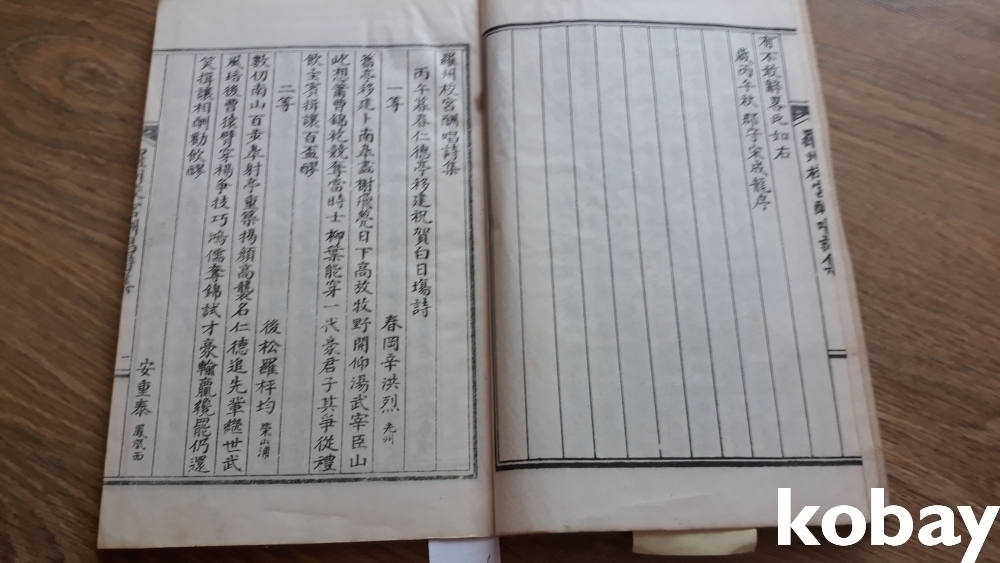 有不敢辭畧此如右
歲丙午秋 郡守宋成龍序
羅州校宮酬唱詩集
羅州校宮酬唱詩集
丙午暮春仁德亭移建祝賀白日塲詩
一等
春岡辛洪烈 光州
舊亭移建卜南奉畵榭飛甍日下高放牧野開仰湯武宰臣山
此想蕭曹錦袍競奪當時士柳葉能穿一代豪君子其爭從禮
飲主賓揖讓百盃醪
二等
後松羅枰均 榮山浦
數仞南山百步奉射亭重築揚顏高襲名仁德追先輩繼世武
風培後曹猿臂穿楊爭技巧鴻儒奪錦試才豪輸贏纔罷仍還
笑揖讓相酬勸飲醪
安重泰 鳳凰面
二
kobay